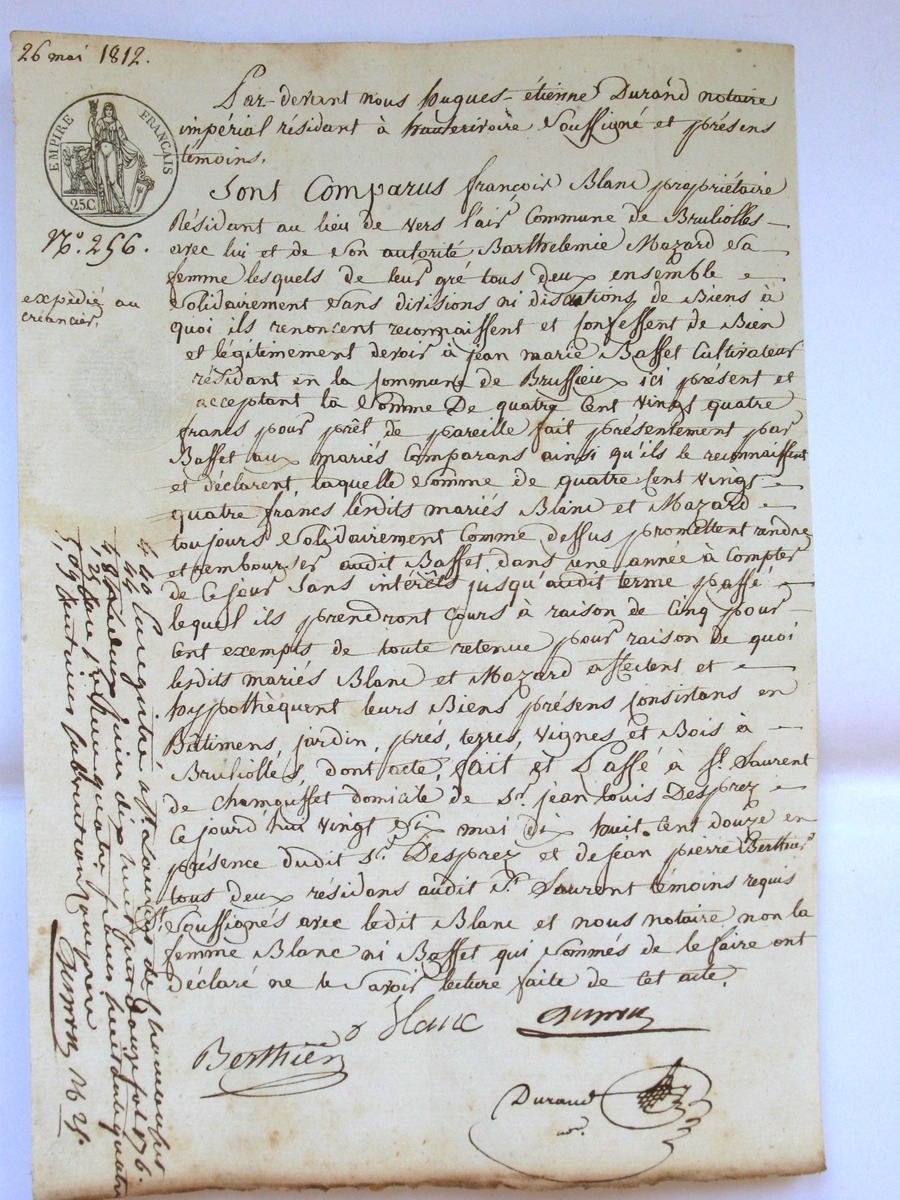 26 mai 1812.
EMPIRE FRANÇAIS
25C.
N.° 256.
expédié au
créancier.
Par-devant nous hugues-étienne Durand notaire
impérial résidant à hauterivoire soussigné et présens
témoins.
Sont Comparus françois Blanc propriétaire
Résidant au lieu de vers l'air Commune de Bruliolles
avec lui et de son autorité Barthelemie Mazard sa
femme lesquels de leur gré tous deux ensemble
solidairement sans divisions ni discutions de Biens à
quoi ils renoncent reconnaissent et Confessent de Bien
et légitimement devoir à jean marie Basset Cultivateur
résidant en la Commune de Brussieux ici présent et
acceptant la somme De quatre Cent vingt quatre
francs pour prêt de pareille fait présentement par
Basset aux mariés Comparans ainsi qu'ils le reconnaissent
et déclarent, laquelle somme de quatre Cent vingt
quatre francs lesdits mariés Blanc et Mazard
toujours solidairement Comme dessus promettent rendre
et rembourser audit Basset dans une année à Compter
de Ce jour sans intérêts jusqu'audit terme passé
lequel ils prendront Cours à raison de Cinq pour
Cent exempts de toute retenue pour raison de quoi
lesdits mariés Blanc et Mazard affectent et
hypothèquent leurs Biens présens Consistans en
Bâtimens, jardin, prés, terres, vignes et Bois à
Brulliolles, dont acte, fait et Passé à St. Laurent
de chamousset domicile de Sr. jean louis Desprez
Ce jourd'hui vingt six mai dix huit Cent douze en
présence dudit Sr. Desprez et de jean pierre Berthier
tous deux résidans audit St. Laurent témoins requis
soussignés avec ledit Blanc et nous notaire non la
femme Blanc ni Basset qui sommés de le faire ont
déclaré ne le savoir lecture faite de Cet acte.
Blanc
Berthier
Durand
nre.
4 40 Enregistré à St. Laurent de Chamousset
44 le deux juin dix huit cent douze fol 176.
4 84
25 reçu quatre francs quatre
5,09